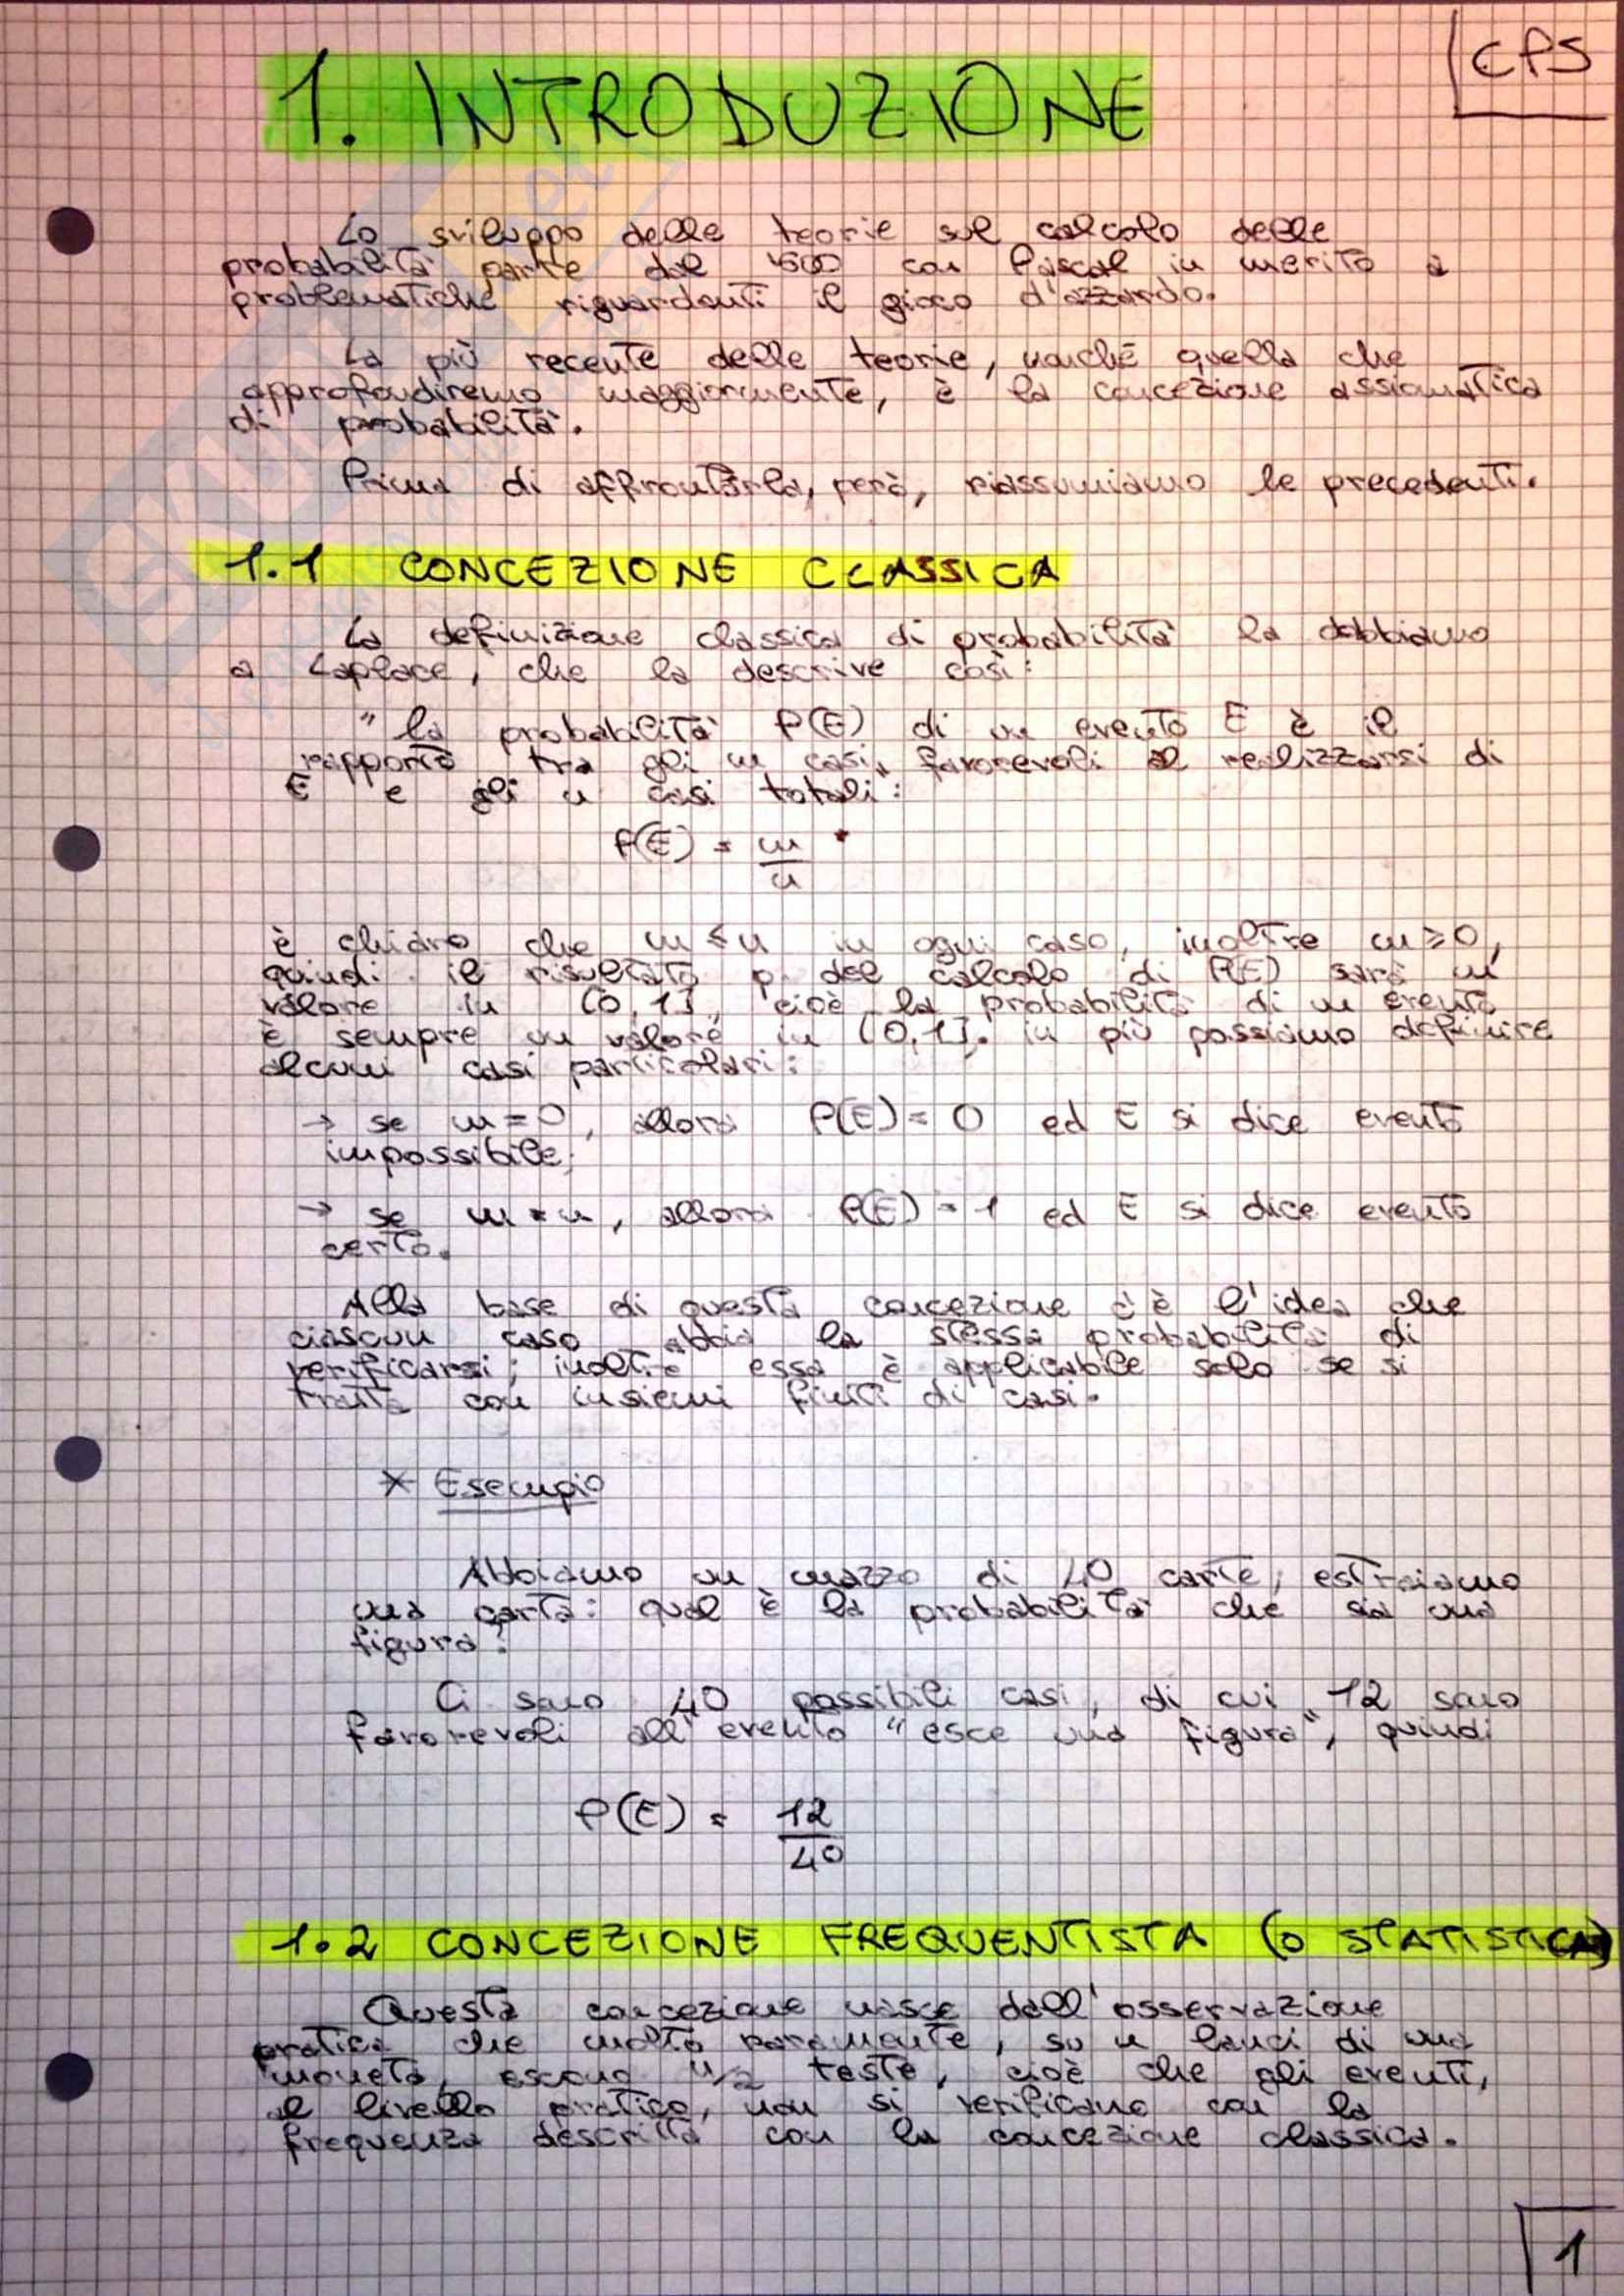 CPS
1. INTRODUZIONE
Lo sviluppo delle teorie sul calcolo delle
probabilità parte dal 1600 con Pascal in merito a
problematiche riguardanti il gioco d'azzardo.
La più recente delle teorie, nonché quella che
approfondiremo maggiormente, è la concezione assiomatica
di probabilità.
Prima di affrontarla, però, riassumiamo le precedenti.
1.1 CONCEZIONE CLASSICA
La definizione classica di probabilità la dobbiamo
a Laplace, che la descrive così:
"la probabilità P(E) di un evento E è il
rapporto tra gli m casi favorevoli al realizzarsi di
E e gli n casi totali:
P(E) = m/n "
è chiaro che m ≤ n in ogni caso, inoltre m ≥ 0,
quindi il risultato p del calcolo di P(E) sarà un
valore in [0,1], cioè la probabilità di un evento
è sempre un valore in [0,1]. in più possiamo definire
alcuni casi particolari:
→ se m = 0, allora P(E) = 0 ed E si dice evento
impossibile;
→ se m = n, allora P(E) = 1 ed E si dice evento
certo.
Alla base di questa concezione c'è l'idea che
ciascun caso abbia la stessa probabilità di
verificarsi; inoltre essa è applicabile solo se si
tratta con insiemi finiti di casi.
* Esempio
Abbiamo un mazzo di 40 carte, estraiamo
una carta: qual è la probabilità che sia una
figura?
Ci sono 40 possibili casi, di cui 12 sono
favorevoli all'evento "esce una figura", quindi
P(E) = 12/40
1.2 CONCEZIONE FREQUENTISTA (O STATISTICA)
Questa concezione nasce dall'osservazione
pratica che molto raramente, su n lanci di una
moneta, escono n/2 teste, cioè che gli eventi,
a livello pratico, non si verificano con la
frequenza descritta con la concezione classica.
1